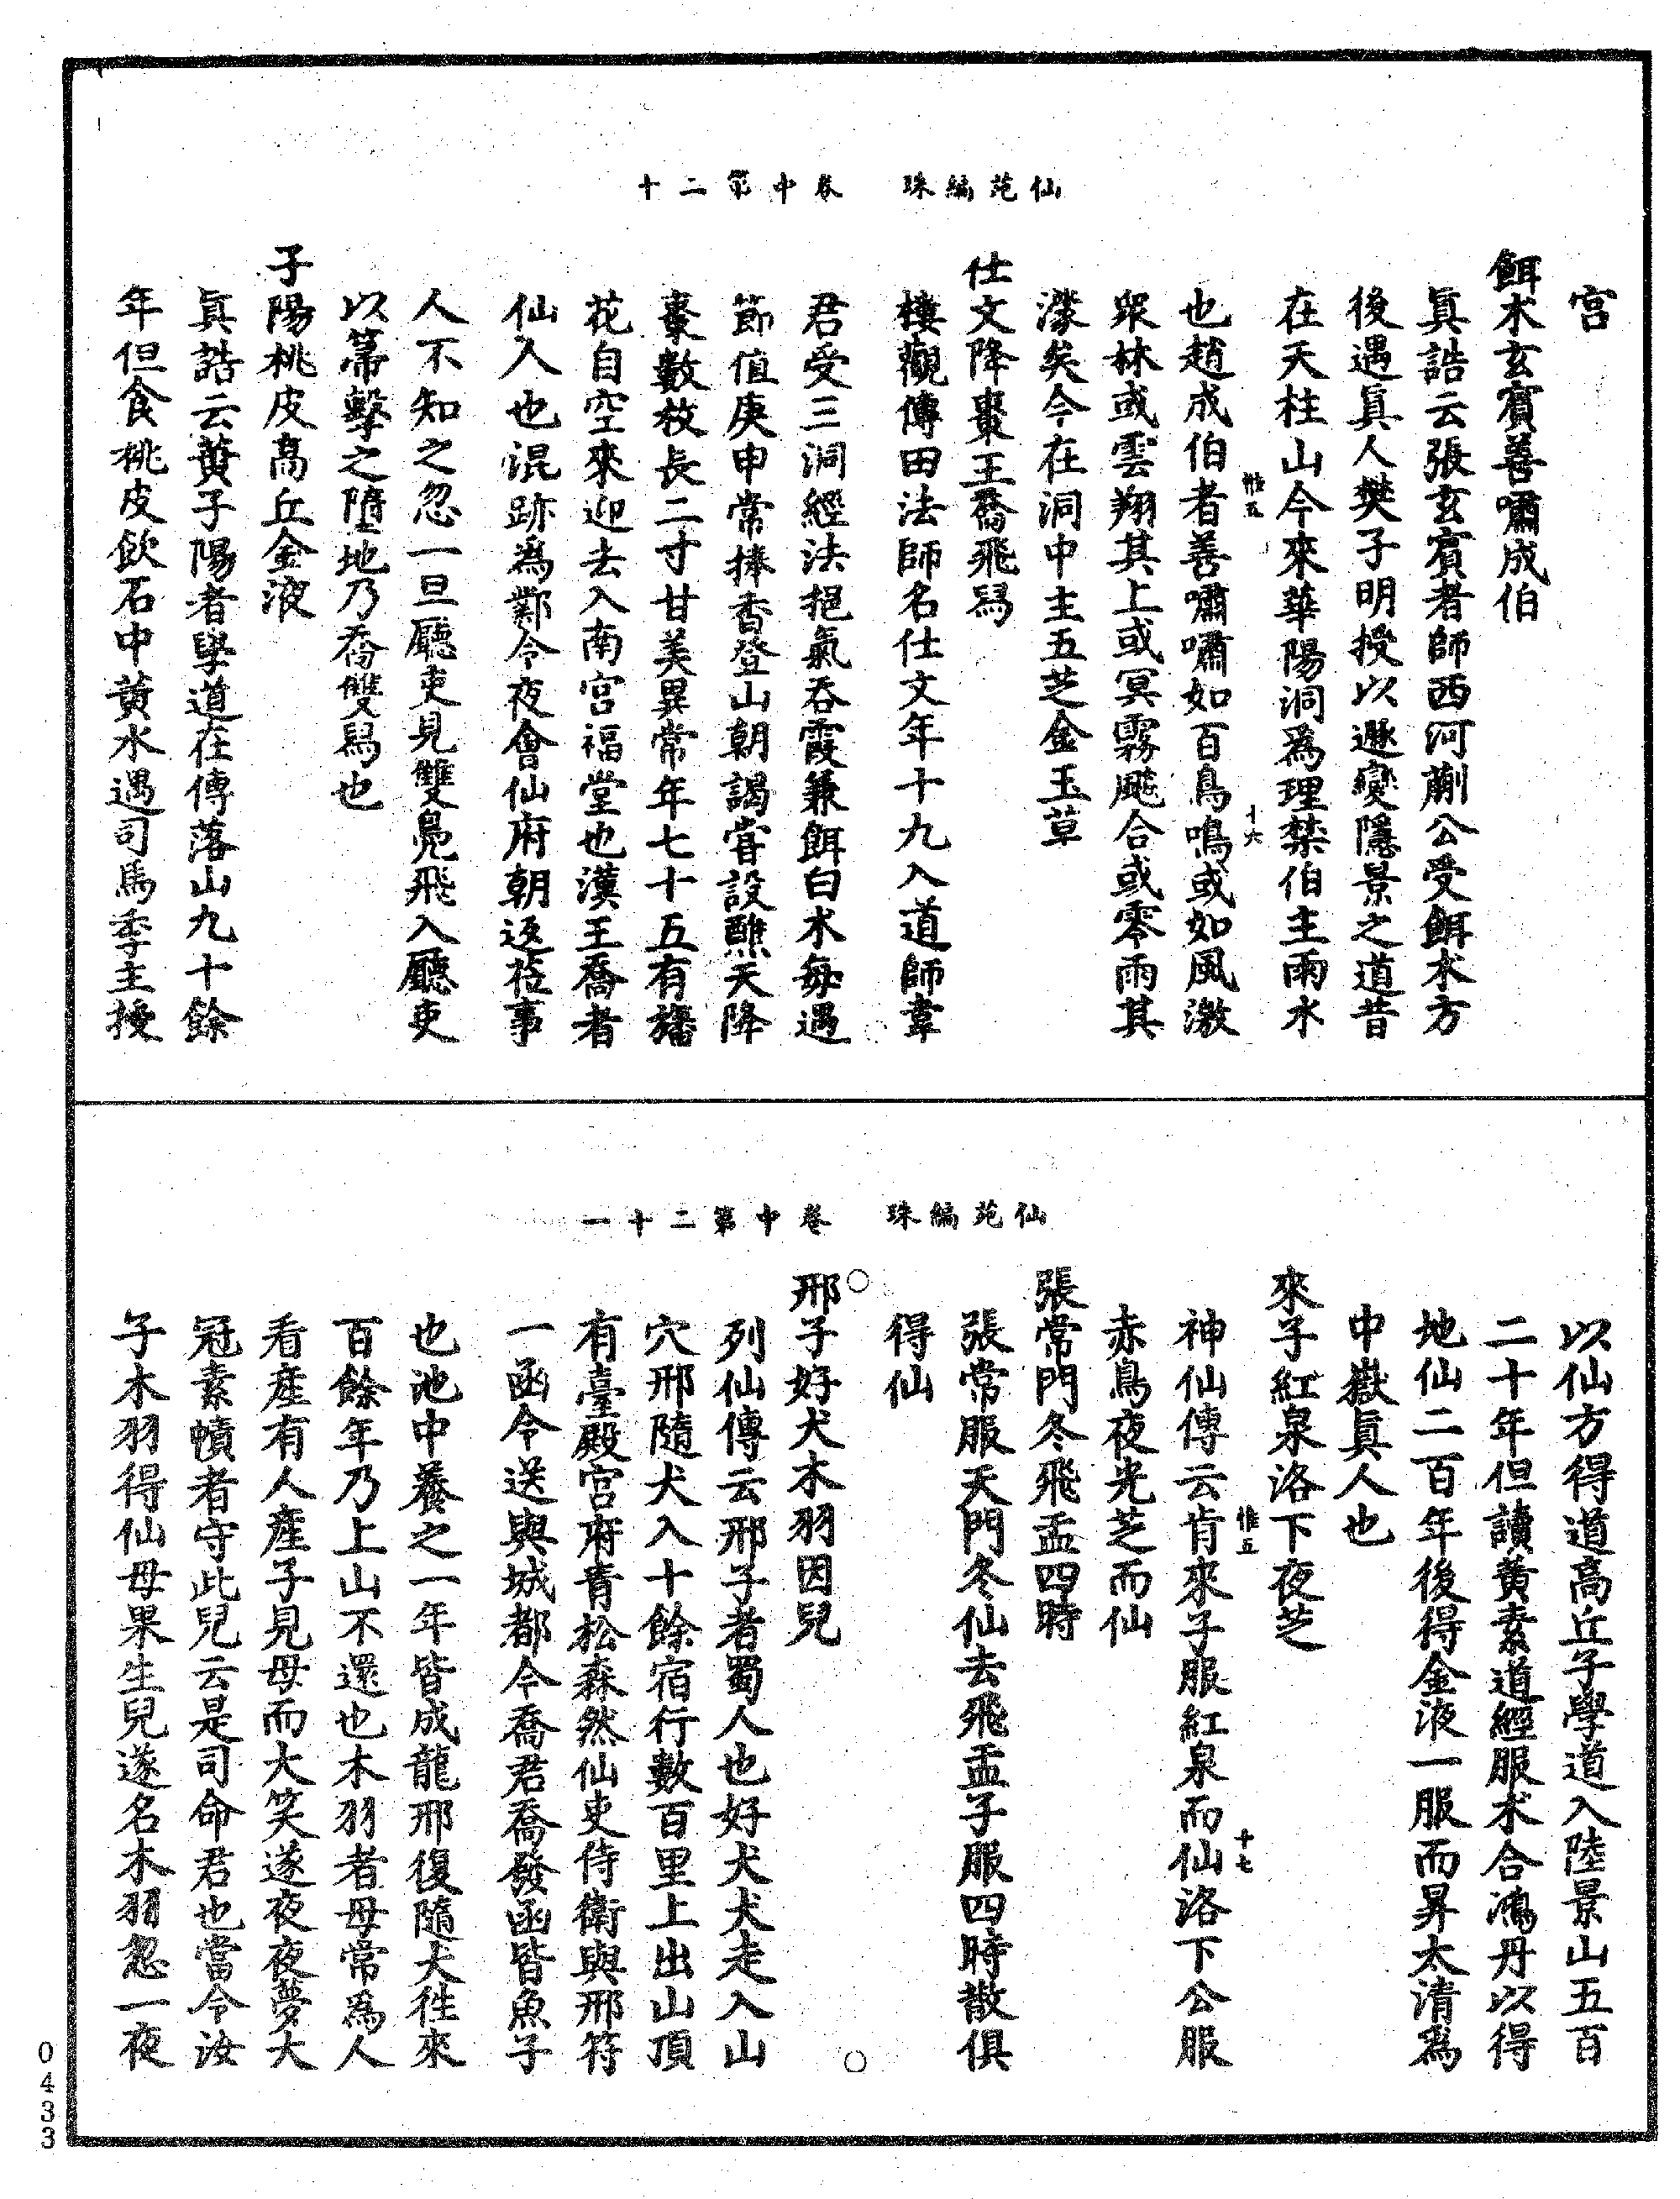 仙苑編珠　卷中第二十
宮
餌术玄賓善嘯成伯
眞誥云張玄賓者師西河薊公受餌术方
後遇眞人樊子明授以遯變隱景之道昔
在天柱山今來華陽洞爲理禁伯主雨水
惟五　十六
也趙成伯者善嘯嘯如百鳥鳴或如風激
衆林或雲翔其上或冥霧颷合或零雨其
濛矣今在洞中主五芝金玉草
仕文降棗王喬飛舃
樓觀傳田法師名仕文年十九入道師韋
君受三洞經法挹氣吞霞兼餌白术每遇
節值庚申常捧香登山朝謁嘗設醮天降
棗數枚長二寸甘美異常年七十五有旛
花自空來迎去入南宮福堂也漢王喬者
仙人也混跡爲鄴令夜會仙府朝返莅事
人不知之忽一旦廳吏見雙鳧飛入廳吏
以箒擊之墮地乃喬雙舃也
子陽桃皮高丘金液
眞誥云黃子陽者學道在傳落山九十餘
年但食桃皮飲石中黃水遇司馬季主授
仙苑編珠　卷中第二十一
以仙方得道高丘子學道入陸景山五百
二十年但讀黃素道經服术合鴻丹以得
地仙二百年後得金液一服而昇太清爲
中嶽眞人也
來子紅泉洛下夜芝
惟五　十七
神仙傳云肯來子服紅泉而仙洛下公服
赤鳥夜光芝而仙
張常門冬飛盂四時
張常服天門冬仙去飛盂子服四時散俱
得仙
邢子好犬木羽因兒
列仙傳云邢子者蜀人也好犬犬走入山
穴邢隨犬入十餘宿行數百里上出山頂
有臺殿宮府青松森然仙吏侍衛與邢符
一函令送與城都令喬君喬發函皆魚子
也池中養之一年皆成龍邢復隨犬往來
百餘年乃上山不還也木羽者母常爲人
看產有人產子見母而大笑遂夜夜夢大
冠素幘者守此兒云是司命君也當令汝
子木羽得仙母果生兒遂名木羽忽一夜
0433